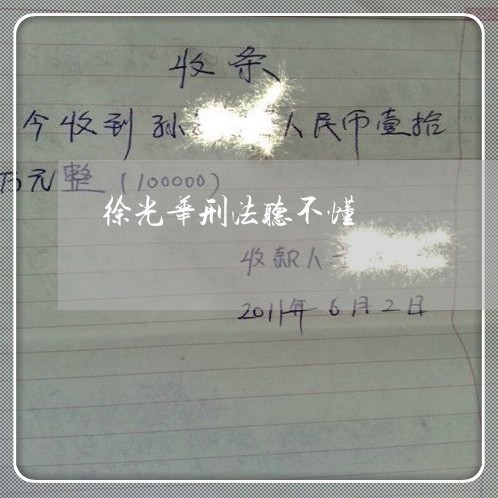 收条
今收到孙 人民币壹拾
万元整（100000）
徐光華刑法聽不懂
收款人
2011年6月2日